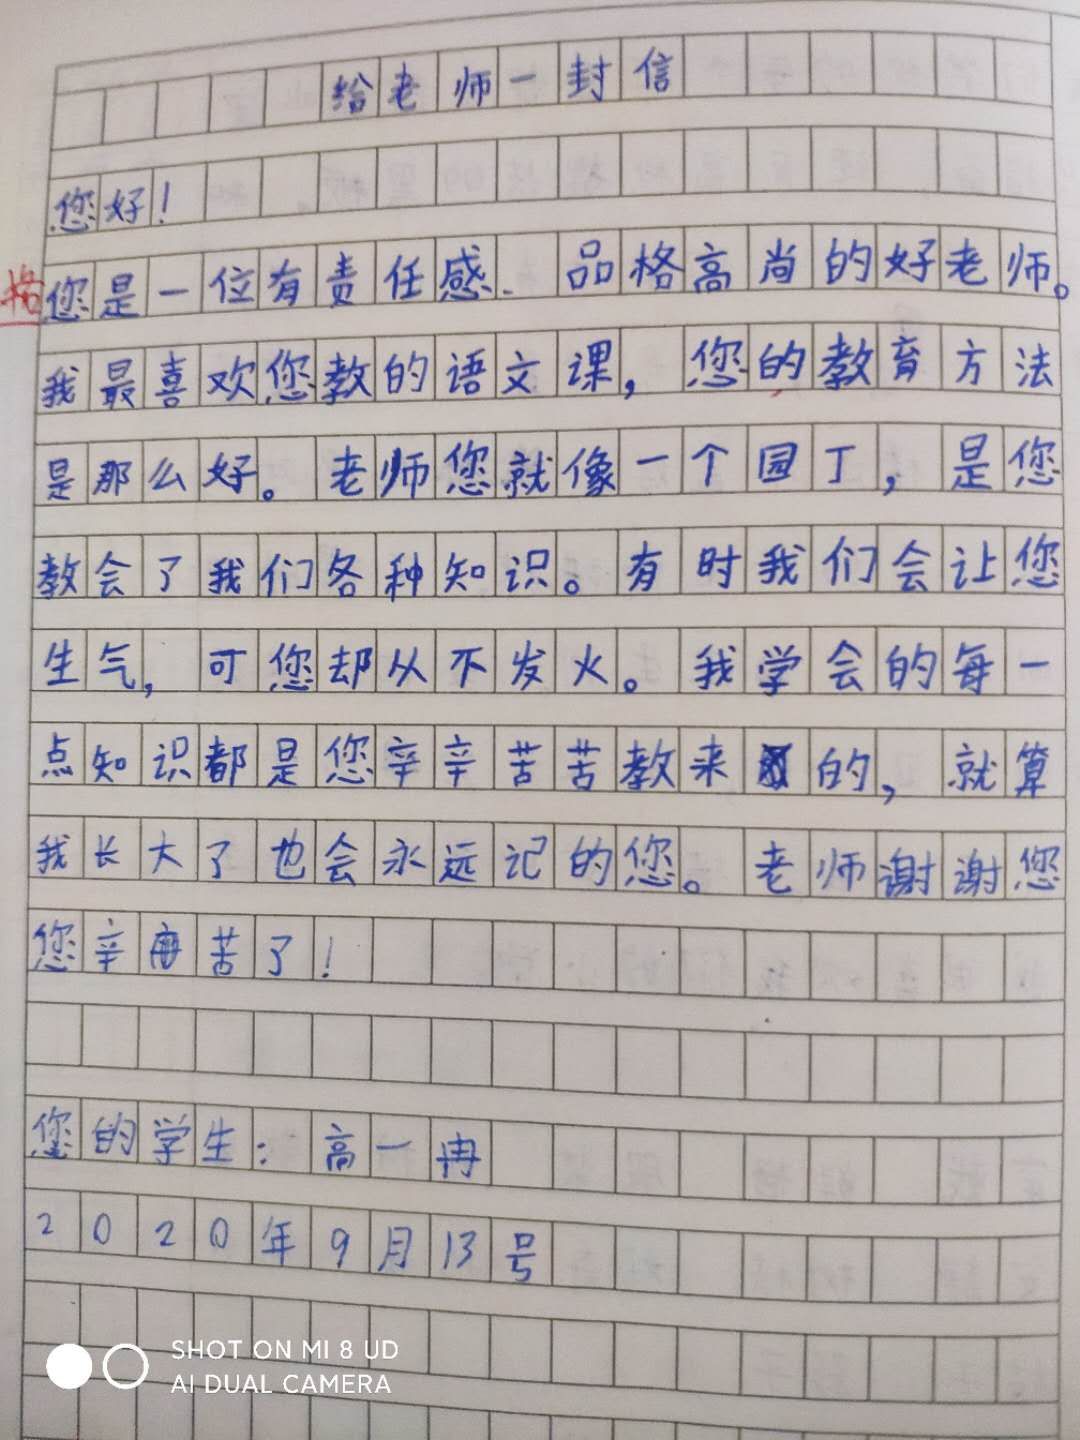 给老师一封信
您好!
格
您是一位有责任感、品格高尚的好老师。
我最喜欢您教的语文课,您的教育方法
是那么好。老师您就像一个园丁,是您
教会了我们各种知识。有时我们会让您
生气,可您却从不发火。我学会的每一
点知识都是您辛辛苦苦教来的,就算
我长大了也会永远记的您。老师谢谢您
您辛苦了!
您的学生:高一冉
2020年9月13号
SHOT ON MI 8 UD
AI DUAL CAMERA